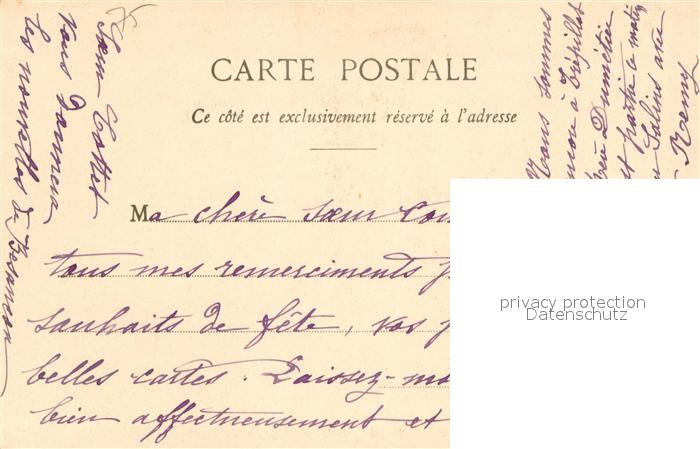 CARTE POSTALE
Ce côté est exclusivement réservé à l'adresse
Ma chère sœur
tous mes remerciments
souhaits de fête, vos
belles cartes. Laissez-mo
bien affectueusement et
Sœur
vous donnera
les nouvelles de Besançon
Nous sommes
à
et partie ce matin
Salins avec
Remy
privacy protection
Datenschutz